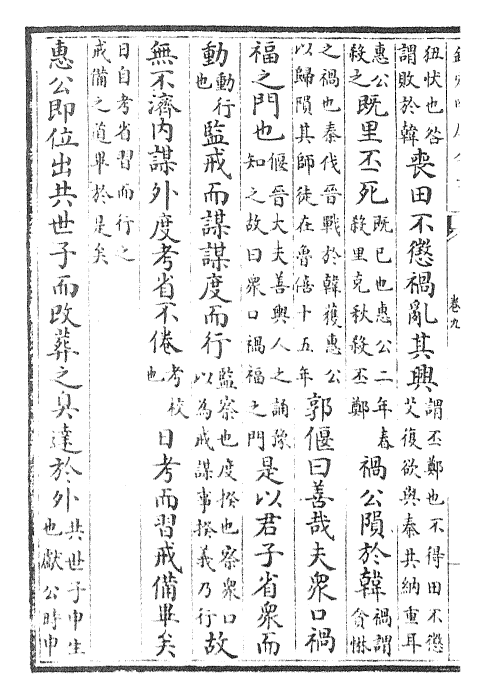 卷九
狃忕也咎
謂敗於韓
喪田不懲禍亂其興
謂丕鄭也不得田不懲
艾復欲與秦共納重耳
惠公
殺之
既里丕死
既已也惠公二年春
殺里克秋殺丕鄭
禍公隕於韓
禍謂
貪惏
之禍也秦伐晉戰於韓獲惠公
以歸隕其師徒在魯僖十五年
郭偃曰善哉夫衆口禍
福之門也
偃晉大夫善輿人之誦豫
知之故曰衆口禍福之門
是以君子省衆而
動
動行
也
監戒而謀謀度而行
監察也度揆也察衆口
以為戒謀事揆義乃行
故
無不濟内謀外度考省不倦
考校
也
日考而習戒備畢矣
日自考省習而行之
戒備之道畢於是矣
惠公即位出共世子而改葬之臭達於外
共世子申生
也獻公時申